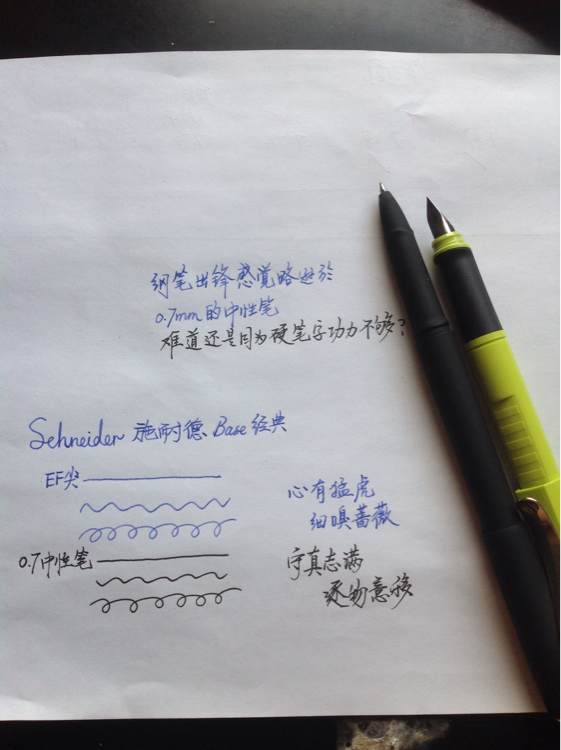 钢笔出锋感觉略逊於
0.7mm的中性笔
难道还是因为硬笔字功力不够?
Schneider 施耐德 Base 经典
EF尖
心有猛虎
细嗅蔷薇
0.7中性笔
守真志满
逐物意移